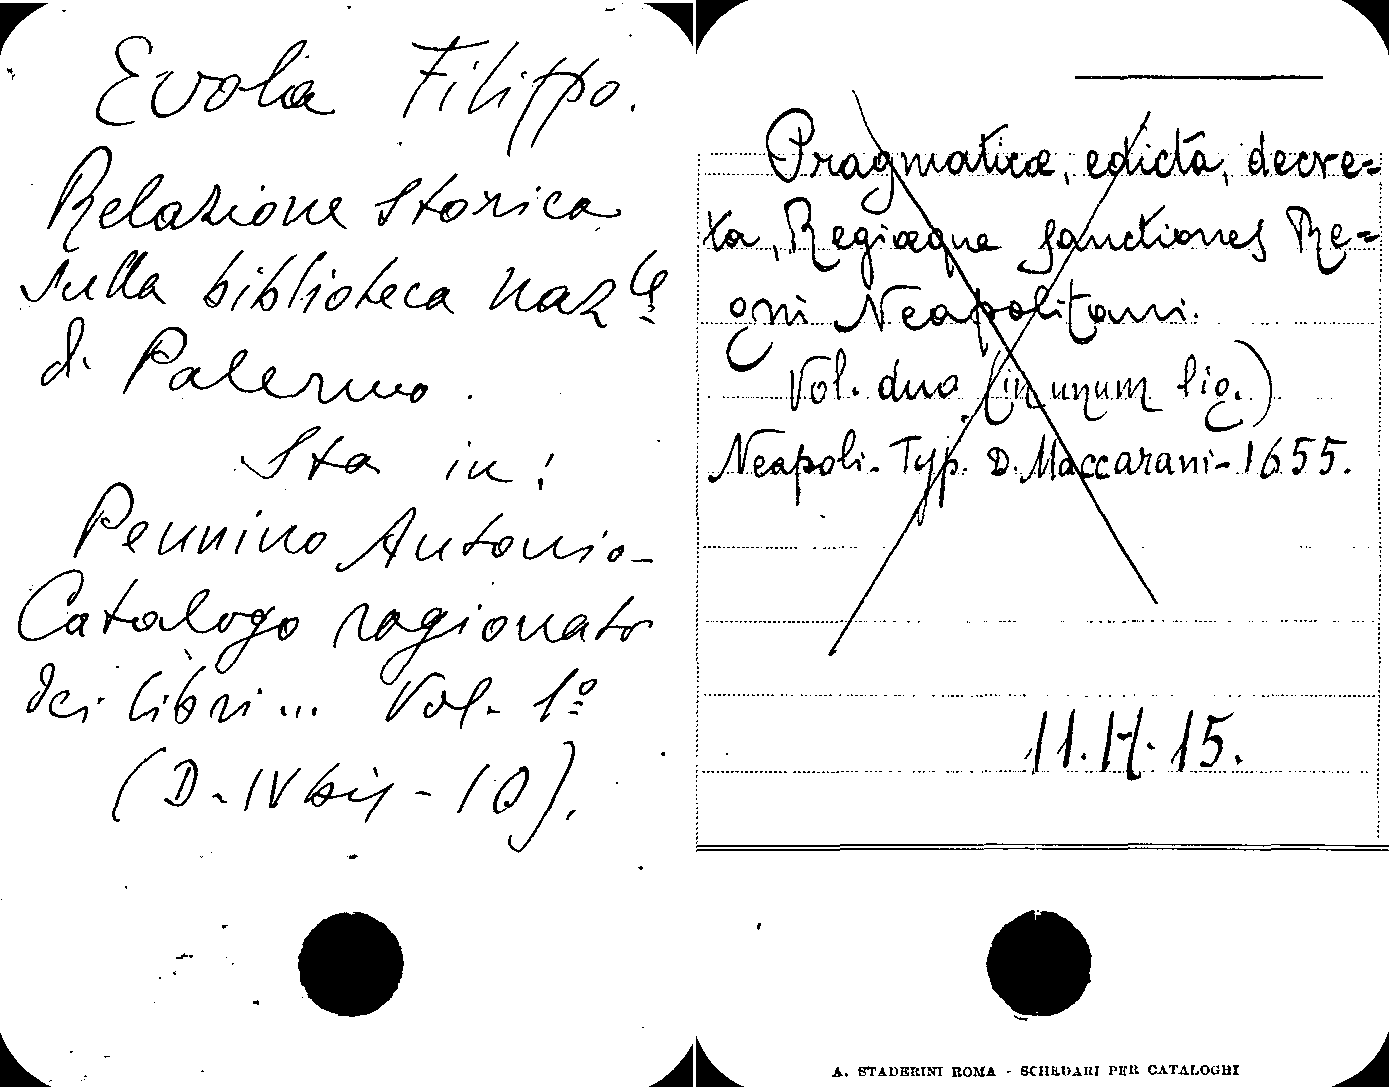 Evola Filippo.
Relazione storica
sulla biblioteca naz.le
di Palermo.
Sta in:
Pennino Antonio-
Catalogo ragionato
dei libri... Vol. 1º
(D-IV bis-10).
Pragmaticæ, edicta, decre=
ta, Regiæque sanctiones Re=
gni Neapolitani.
Vol. duo (in unum lig.)
Neapoli- Typ. D. Maccarani-1655.
11.H.15.
A. STADERINI ROMA - SCHEDARI PER CATALOGHI